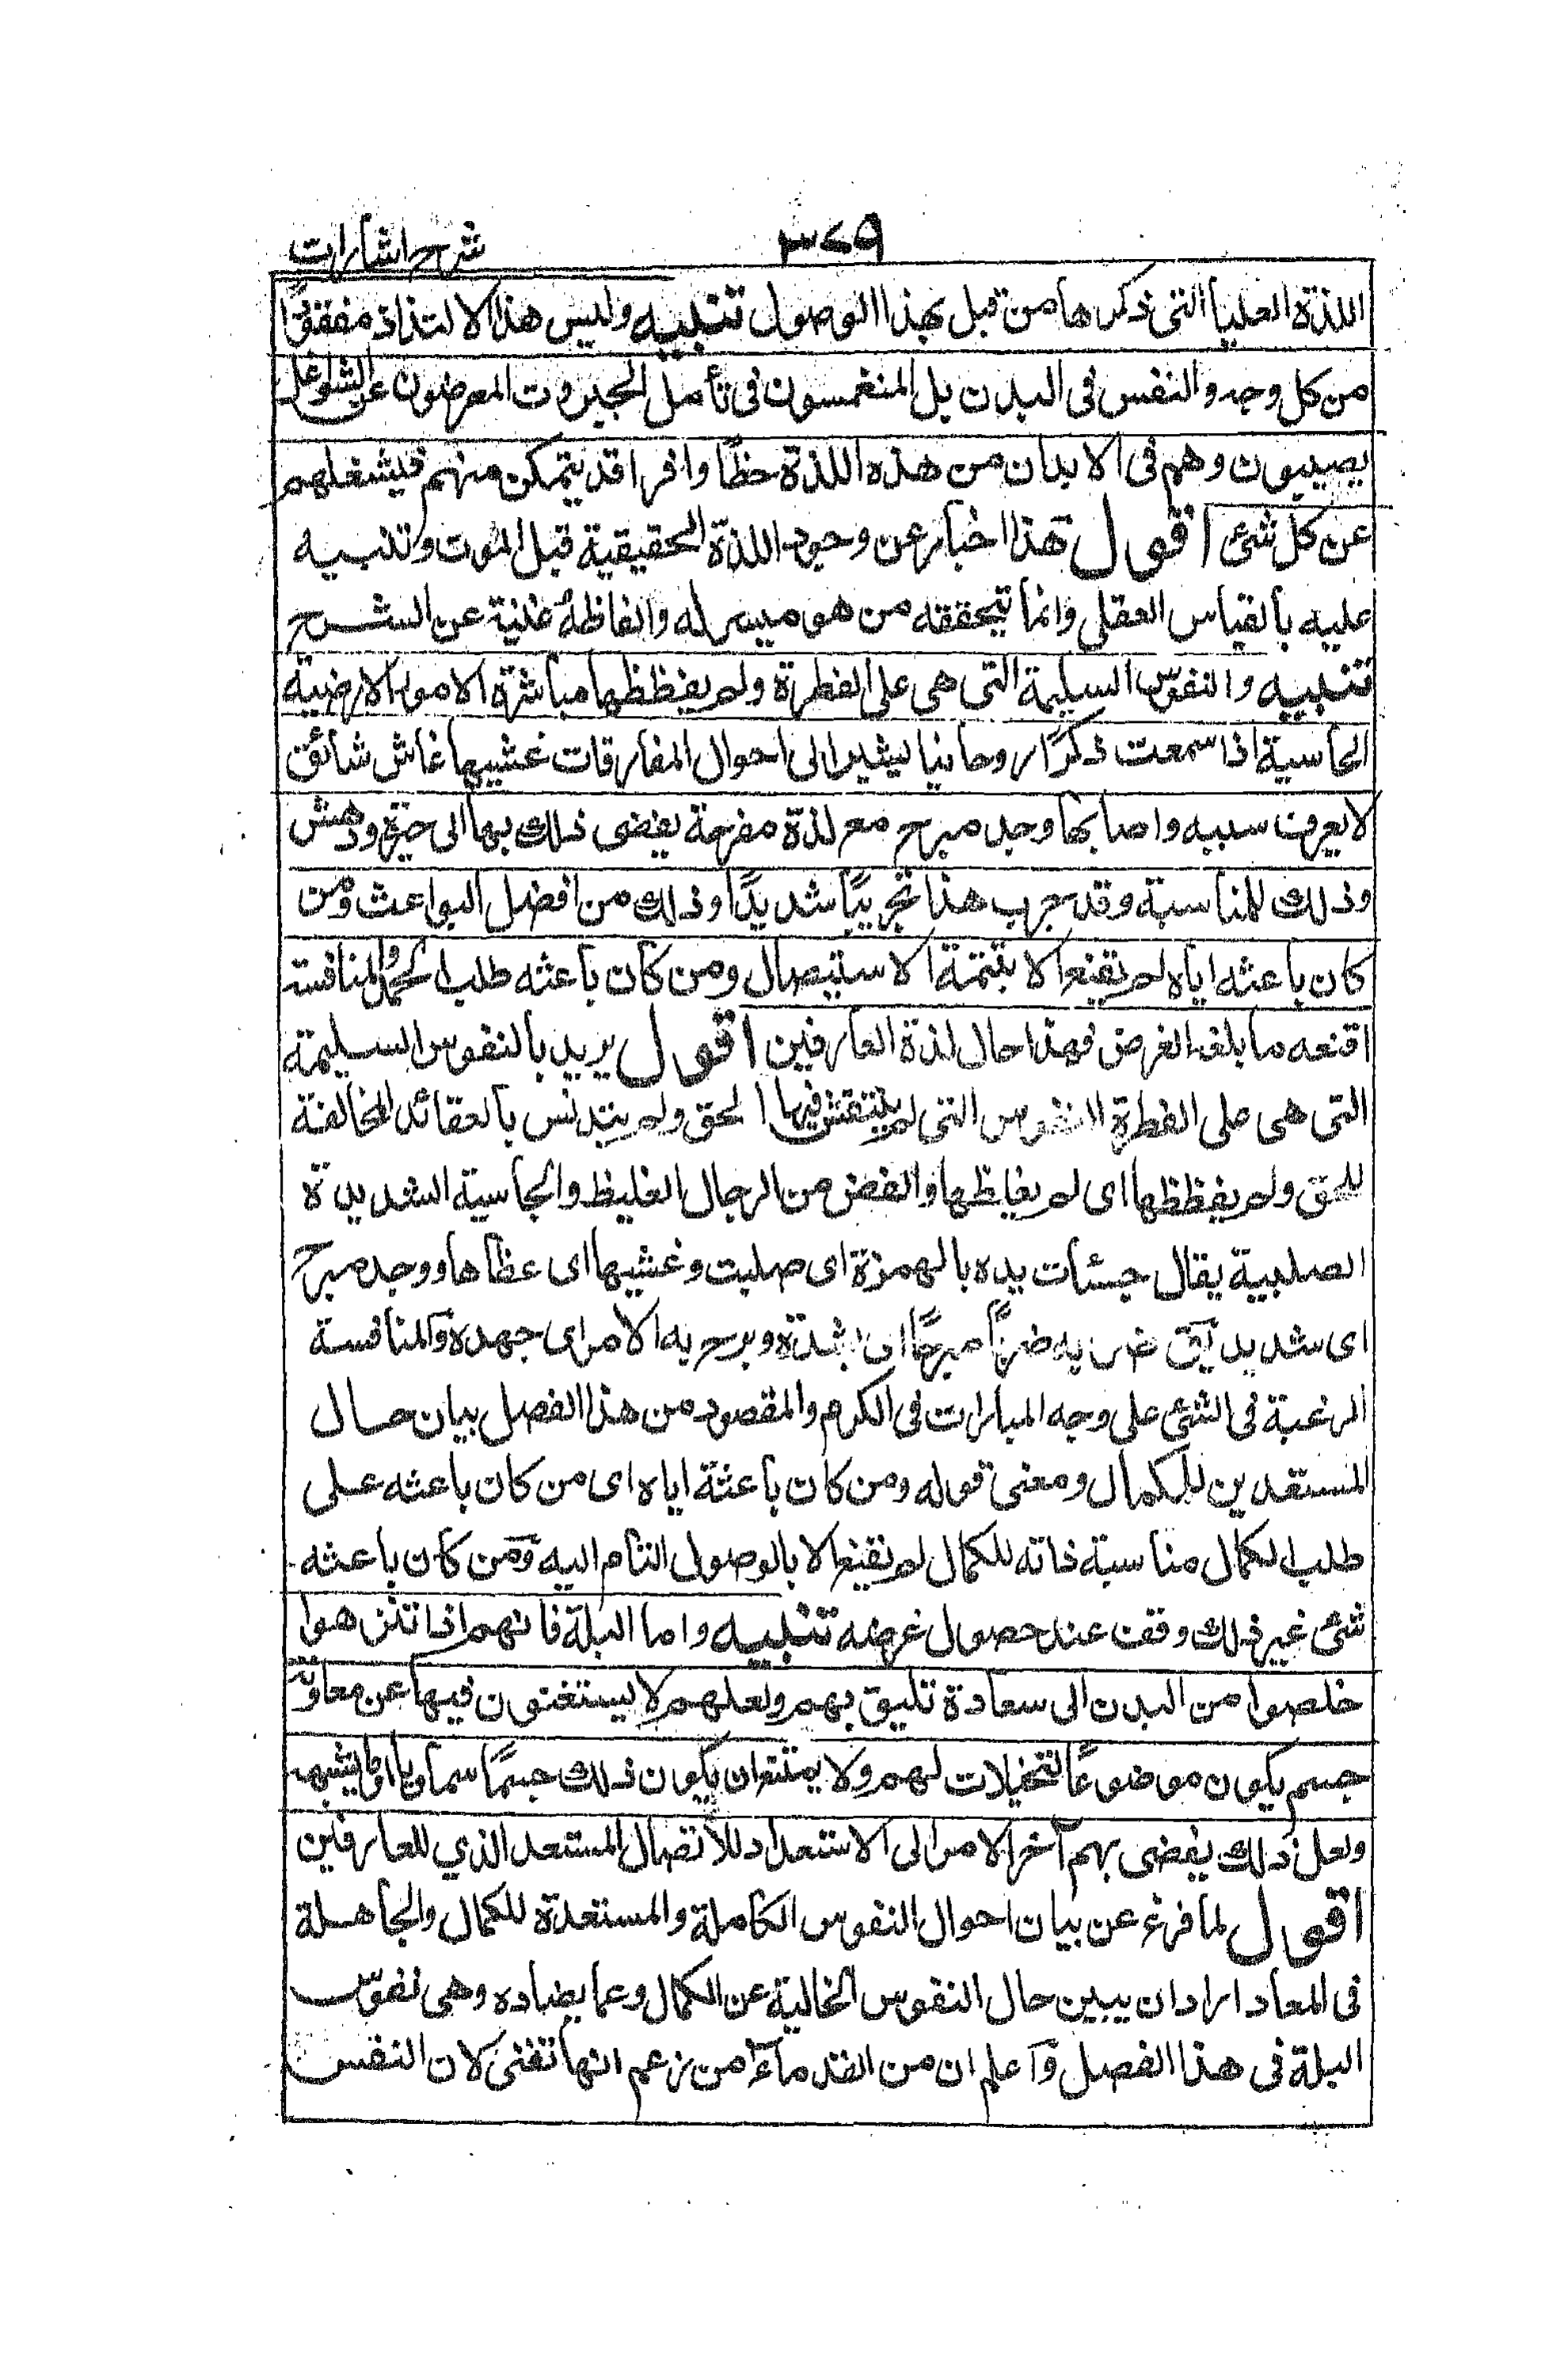 شرح اشارات ٣٧٩
اللذة العليا التى ذكرها من قبل بهذا الوصول تنبيه وليس هذا الالتذاذ مفقودًا
من كل وجه والنفس فى البدن بل المنغمسون فى تأمل الجبروت المعرضون عن الشواغل
يصيبون وهم فى الابدان من هذه اللذة حظًا وافرا قد يتمكن منهم فيشغلهم
عن كل شئ اقول هذا اخبار عن وجود اللذة الحقيقية قبل الموت وتنبيه
عليه بالقياس العقلى وانما يتحققه من هو ميسر له والفاظهٗ غنية عن الشرح
تنبيه والنفوس السليمة التى هى على الفطرة ولم يفظظها مباشرة الامور الارضية
الجاسية اذا سمعت ذكرًا روحانيا يشير الى احوال المفارقات غشيها غاش شائق
لا يعرف سببه واصابها وجد مبرح مع لذة مفرحة يفضى ذلك بها الى حيرة ودهش
وذلك للمناسبة وقد جرب هذا تجريبًا شديدًا وذلك من افضل البواعث ومن
كان باعثه اياه لم يقنع الا بتتمة الاستبصال ومن كان باعثه طلب الحمد والمنافسة
اقنعه ما بلغه الغرض فهذا حال لذة العارفين اقول يريد بالنفوس السليمة
التى هى على الفطرة النفوس التى لم ينتقش فيها الحق ولم يتدنس بالعقائد المخالفة
للحق ولم يفظظها اى لم يغلظها والفض من الرجال الغليظ والجاسية الشديدة
الصلبية يقال جسئات يده بالهمزة اى صلبت وغشيها اى غطاها ووجد مبرح
اى شديد يق ضربه ضربًا مبرحًا اى بشدة وبرح به الامر اى جهده والمنافسة
الرغبة فى الشئ على وجه المبارات فى الكرم والمقصود من هذا الفصل بيان حال
المستعدين للكمال ومعنى قوله ومن كان باعثة اياه اى من كان باعثه على
طلب الكمال مناسبة ذاته للكمال لم يقنع الا بالوصول التام اليه ومن كان باعثه
شئ غير ذلك وقف عند حصول غرضه تنبيه واما البلة فانهم اذا تنزهوا
خلصوا من البدن الى سعادة تليق بهم ولعلهم لا يستغنون فيها عن معاونة
جسم يكون موضوعًا لتخيلات لهم ولا يمتنع ان يكون ذلك جسمًا سماويا او ما يشبهه
ولعل ذلك يفضى بهم آخر الامر الى الاستعداد للاتصال المستعد الذي للعارفين
اقول لما فرغ عن بيان احوال النفوس الكاملة والمستعدة للكمال والجاهلة
فى المعاد اراد ان يبين حال النفوس الخالية عن الكمال وعما يضاده وهى نفوس
البلة فى هذا الفصل وآعلم ان من القدمآء من زعم انها تفنى لان النفس